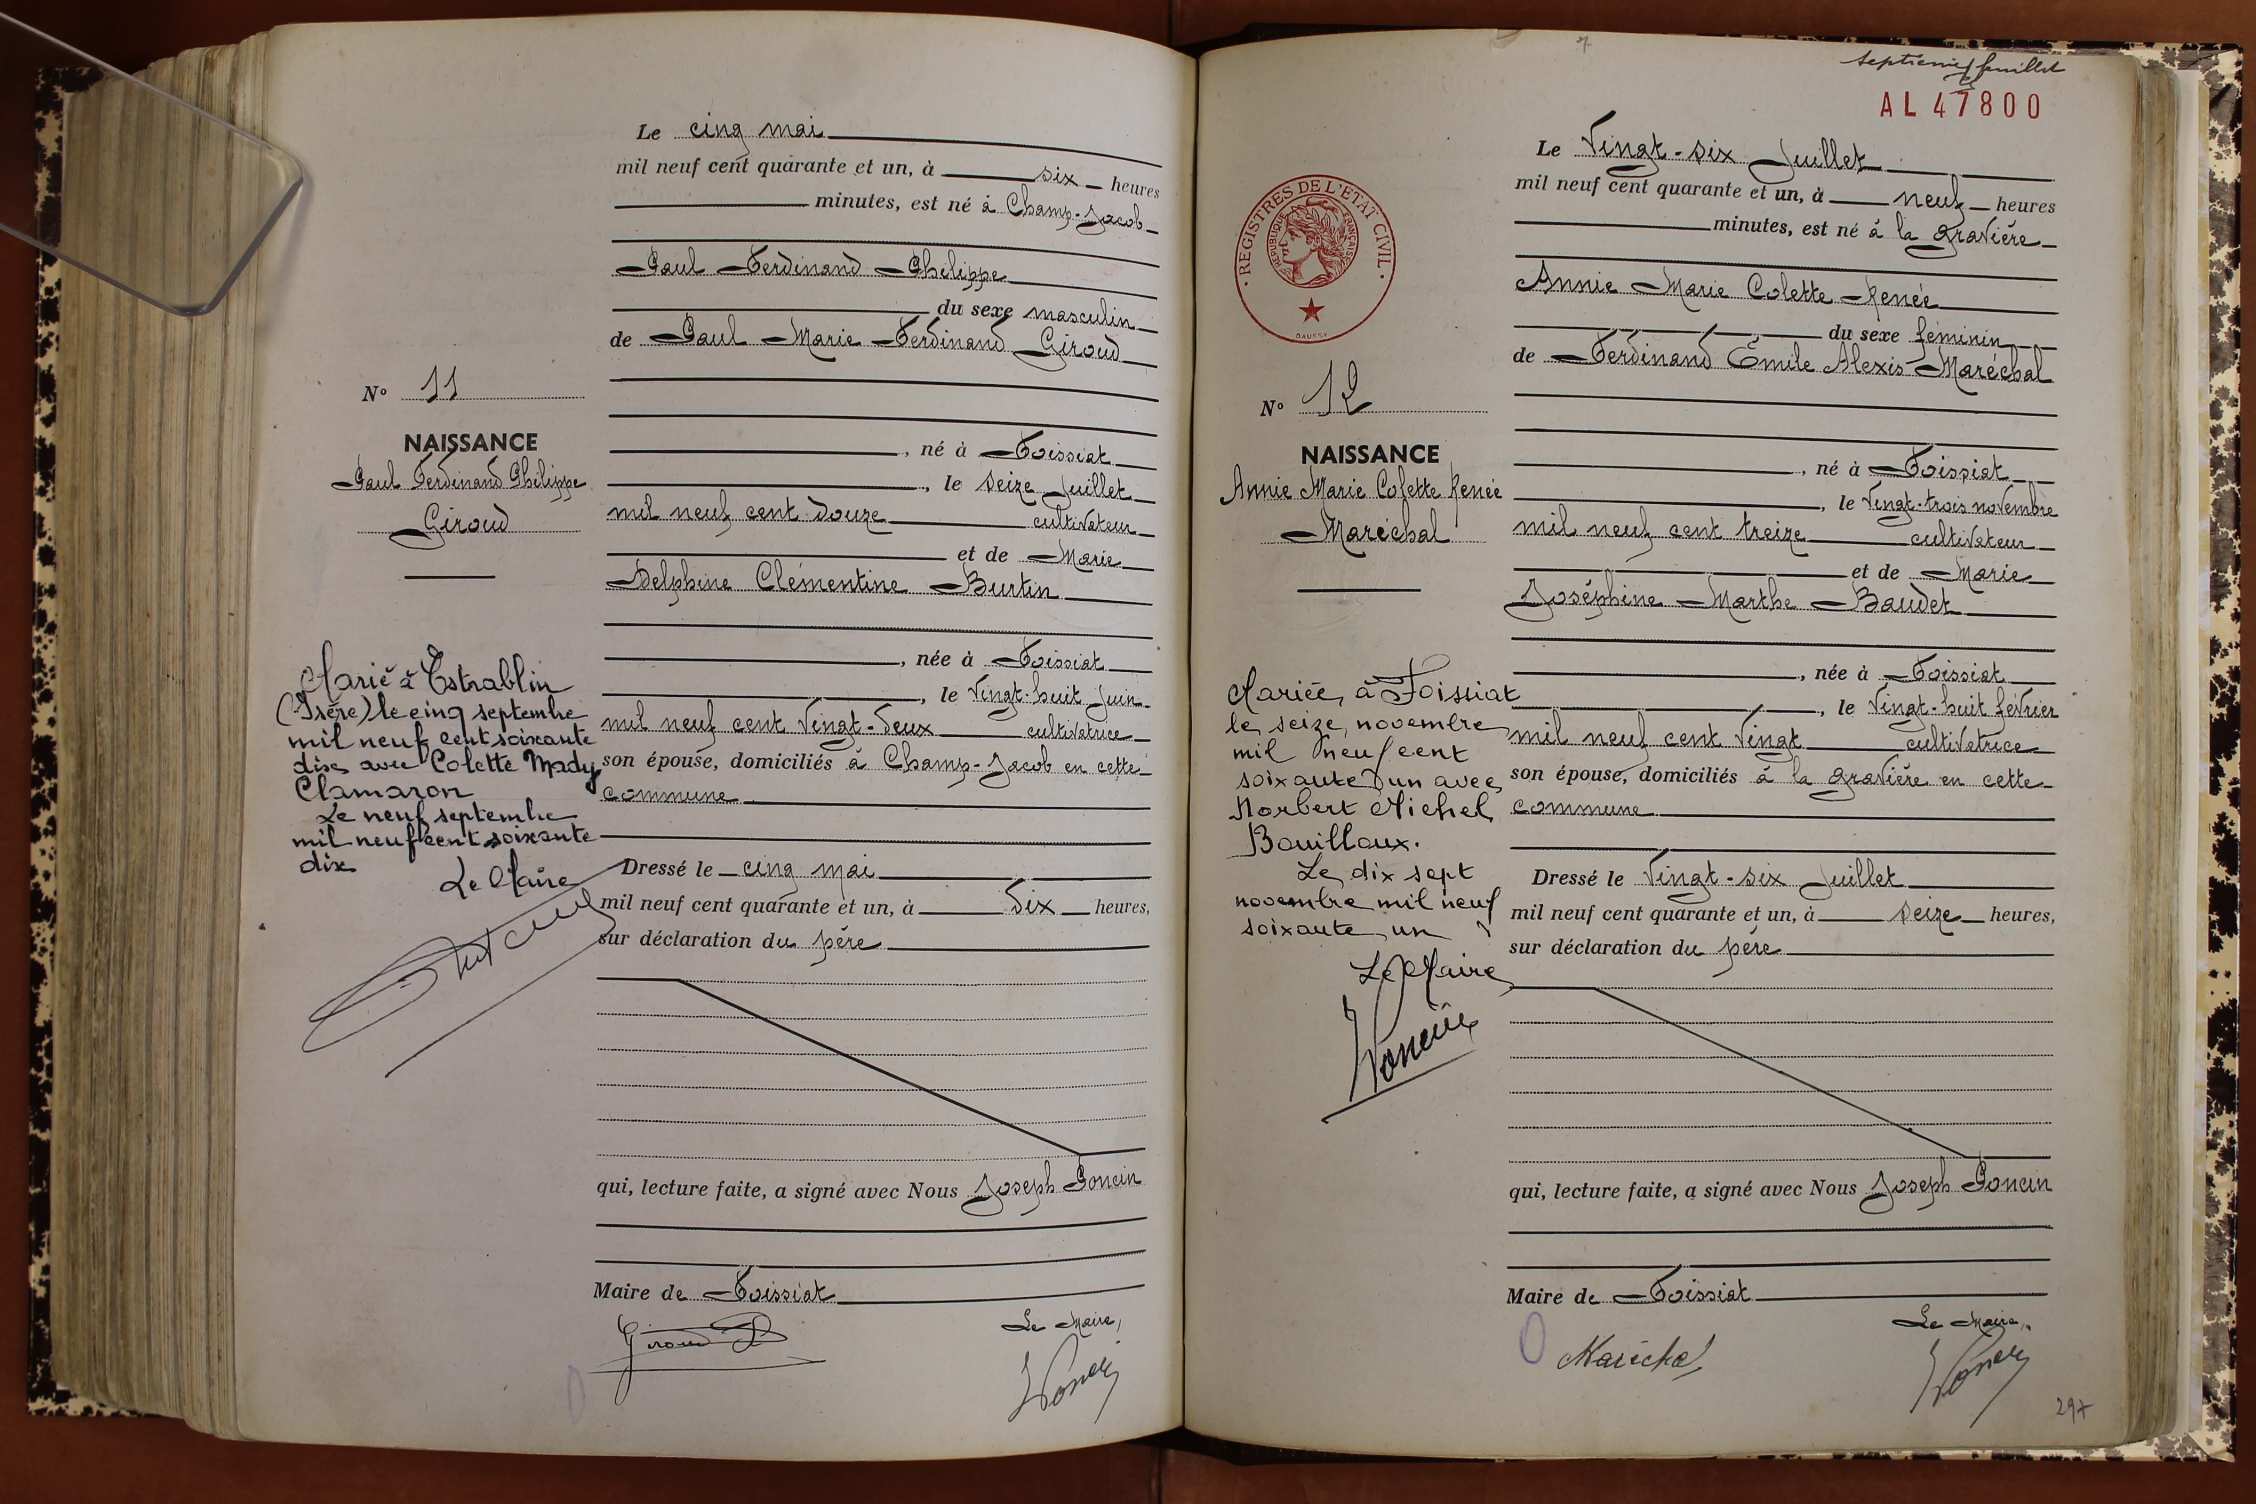 Le cinq mai
mil neuf cent quarante et un, à six heures
minutes, est né à Champ-Jacob
Paul Ferdinand Philippe
du sexe masculin
de Paul Marie Ferdinand Giroud
, né à Foissiat
, le seize Juillet
mil neuf cent douze cultivateur
et de Marie
Delphine Clémentine Burtin
, née à Foissiat
, le Vingt-huit Juin
mil neuf cent Vingt-deux cultivatrice
son épouse, domiciliés à Champ-Jacob en cette
commune
Dressé le cinq mai
mil neuf cent quarante et un, à Dix heures,
sur déclaration du père
qui, lecture faite, a signé avec Nous Joseph Poncin
Maire de Foissiat
Le Maire,
Giroud
Poncin
N° 11
NAISSANCE
Paul Ferdinand Philippe
Giroud
Marié à Estrablin
(Isère) le cinq septembre
mil neuf cent soixante
dix avec Colette Mady
Clamaron
Le neuf septembre
mil neuf cent soixante
dix
Le Maire
septième feuillet
AL 47800
REGISTRES DE L'ETAT CIVIL
REPUBLIQUE FRANÇAISE
DAUSSY
Le Vingt-six Juillet
mil neuf cent quarante et un, à neuf heures
minutes, est né à la gravière
Annie Marie Colette Renée
du sexe féminin
de Ferdinand Émile Alexis Maréchal
, né à Foissiat
, le Vingt-trois novembre
mil neuf cent treize cultivateur
et de Marie
Joséphine Marthe Baudet
, née à Foissiat
, le Vingt-huit février
mil neuf cent Vingt cultivatrice
son épouse, domiciliés à la gravière en cette
commune
Dressé le Vingt-six Juillet
mil neuf cent quarante et un, à seize heures,
sur déclaration du père
qui, lecture faite, a signé avec Nous Joseph Poncin
Maire de Foissiat
Le Maire,
Maréchal
Poncin
297
N° 12
NAISSANCE
Annie Marie Colette Renée
Maréchal
Mariée à Foissiat
le seize novembre
mil neuf cent
soixante un avec
Norbert Michel
Bouilloux.
Le dix sept
novembre mil neuf
soixante un
Le Maire
Poncin